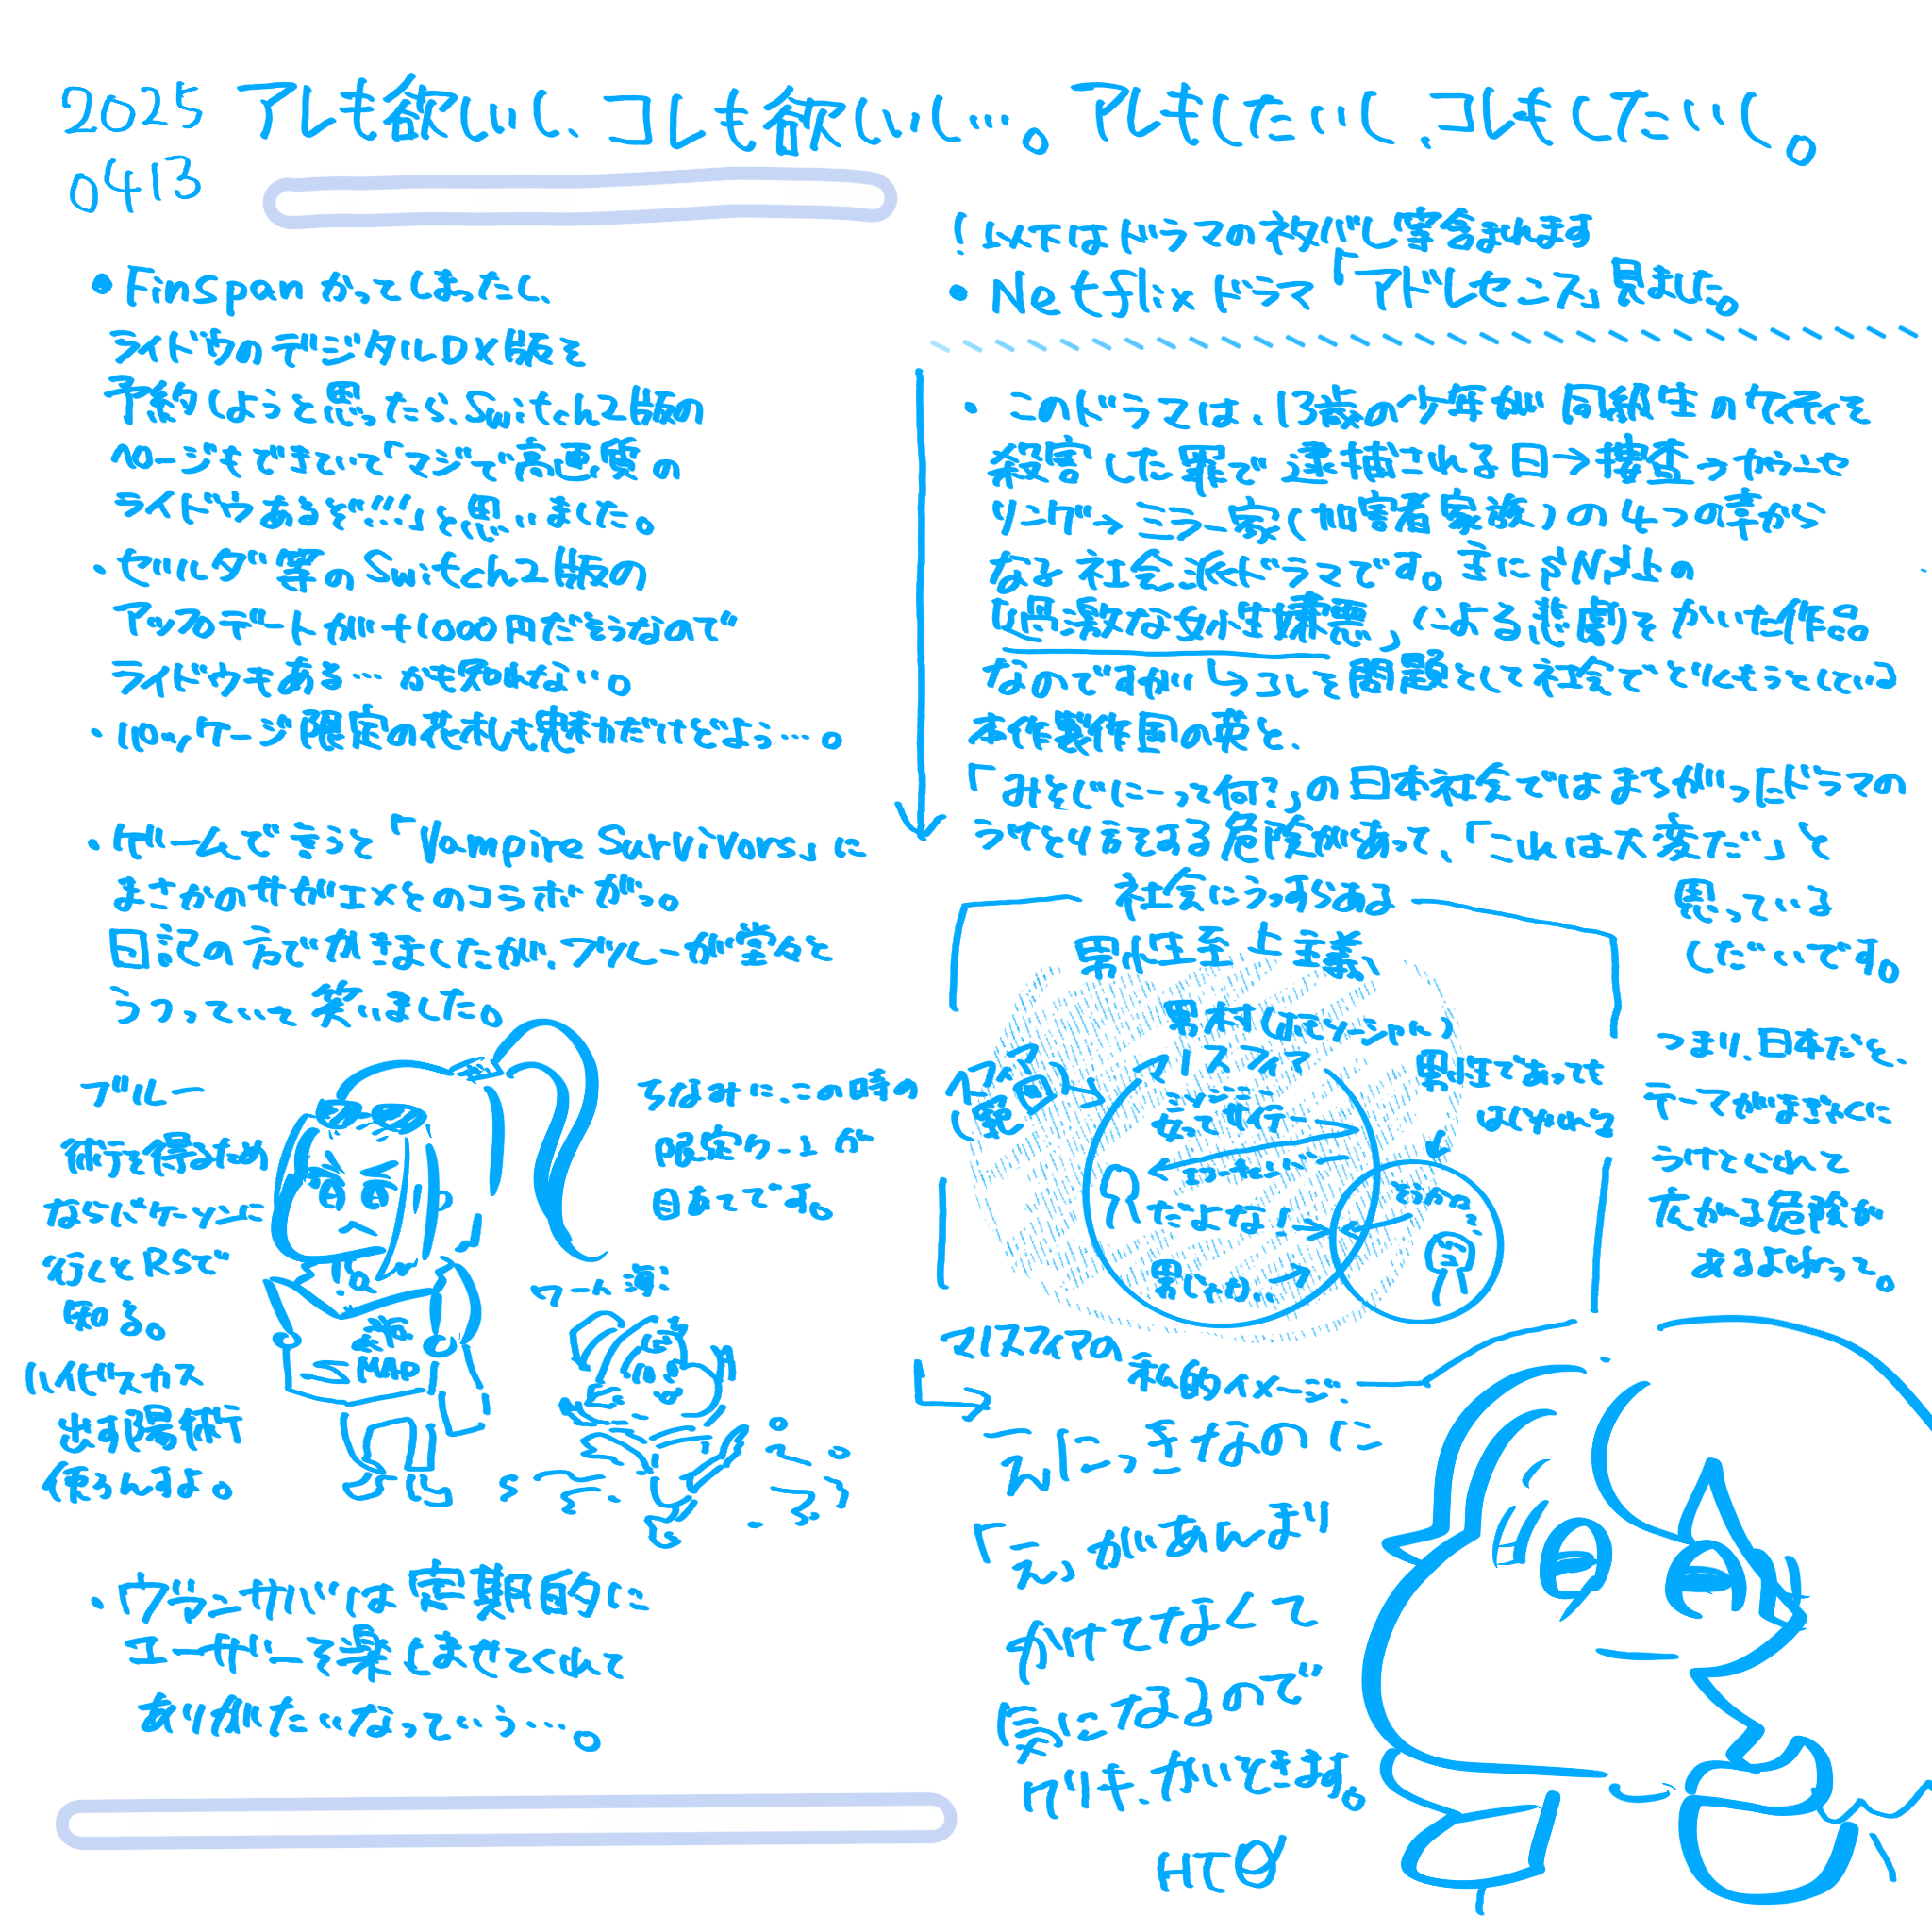 2025
0413
アレも欲しいし、コレも欲しいし…。アレもしたいし、コレもしたいし。
・Finspanかってしまったし、
ライドウのデジタルDX版を
予約しようと思ったら、Switch2版の
ページもできていて「マジで高画質の
ライドウあるぞ!!!」と思いました。
・ゼルダ等のSwitch2版の
アップデートが+1000円だそうなので
ライドウもある…かも知れない。
・パッケージ限定の花札も魅力だけどよっ…。
・ゲームで言うと「Vampire Survivors」に
まさかのサガエメとのコラボがっ。
日記の方でかきましたが、ブルーが堂々と
うつっていて笑いました。
ブルー
術を得るため
ならバカーソンに
行くとRSで
知る。
ハイビスカス
出す陽術
使うんすよ。
ちなみに、この時の
限定クーユが
目あてです。
クーン達
MAP
・ヴァンサバは定期的に
ユーザーを楽しませてくれて
ありがたいなっていう…。
!以下はドラマのネタバレ等含まれます
・Netflixドラマ「アドレセンス」見ました。
・このドラマは、13歳の少年が同級生のケイティを
殺害した罪で逮捕される日→捜査→カウンセ
リング→ミラー家(加害者家族)の4つの章から
なる社会派ドラマです。主にSNS上の
「過激な女性嫌悪」による悲劇をかいた作品
なのですが↳コレを問題として社会でどにくもうとしている
本作製作国の英と、
「みそじにーって何?」の日本社会ではまちがったドラマの
うけとり方をする危険があって、「これは大変だ」と
思っている
しだいです。
社会にうっすらある
男性至上主義
男村(ホモソーシャル)
マノスフィア
ミソジニー
女ってサイテー
だよな!
男じゃない…
男性であっても
はじかれる
つまり、日本だと、
テーマがまぎゃくに
うけとられて
広がる危険が
あるよねって。
マノスフィアの
私的イメージ
えにっきなのに
「え」があんまり
かけてなくて
気になるので
ワリオ、かいときます。
HTO